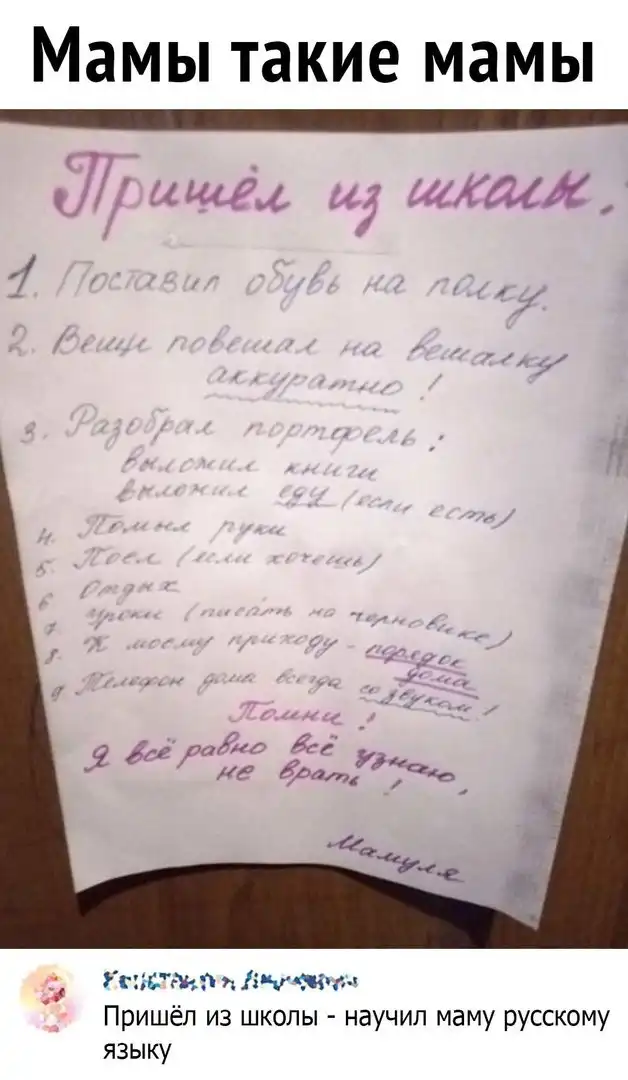 Мамы такие мамы
Пришёл из школы.
1. Поставил обувь на полку.
2. Вещи повешал на вешалку
аккуратно !
3. Разобрал портфель :
выложил книги
выложил еду (если есть)
4. Помыл руки
5. Поел (если хочешь)
6 Отдых
7. уроки (писать на черновике)
8. К моему приходу - поредок
дома
9 Телефон дома всегда со звуком !
Помни !
Я всё равно всё узнаю,
не врать !
Мамуля
Пришёл из школы - научил маму русскому
языку